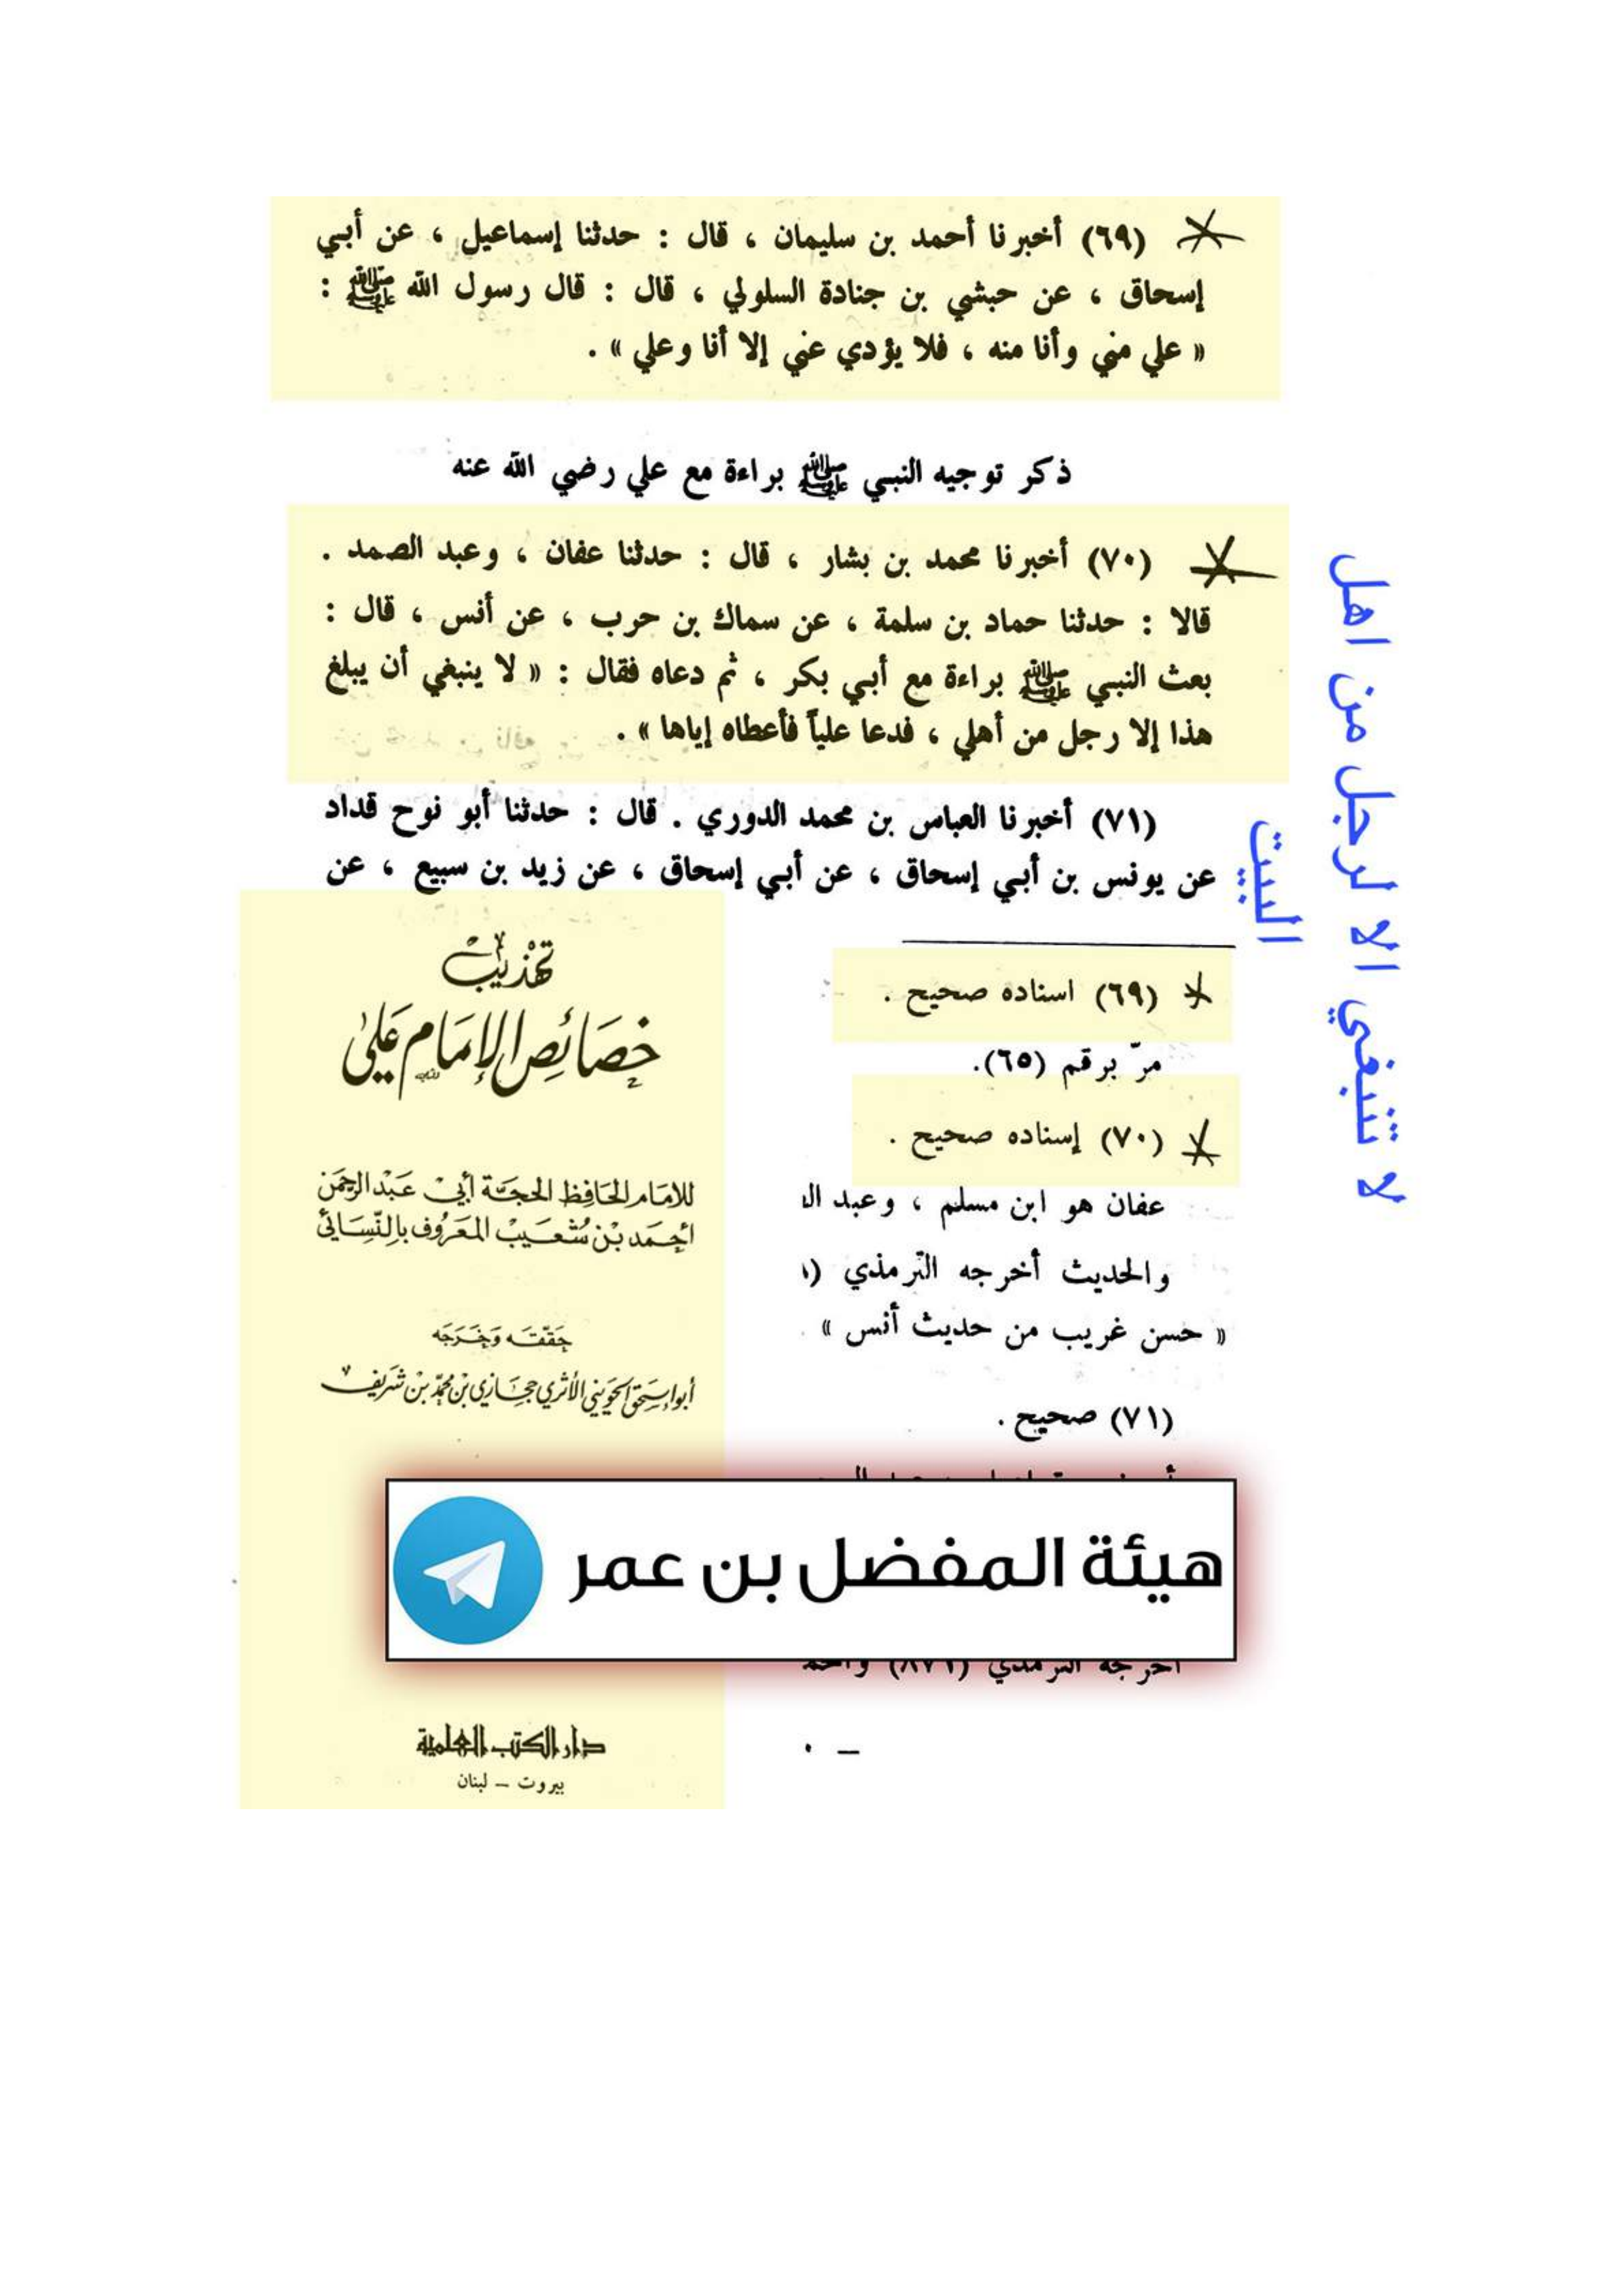 (٦٩) أخبرنا أحمد بن سليمان ، قال : حدثنا إسماعيل ، عن أبي
إسحاق ، عن حبشي بن جنادة السلولي ، قال : قال رسول الله ﷺ :
« علي مني وأنا منه ، فلا يؤدي عني إلا أنا وعلي » .
ذكر توجيه النبي ﷺ براءة مع علي رضي الله عنه
(٧٠) أخبرنا محمد بن بشار ، قال : حدثنا عفان ، وعبد الصمد .
قالا : حدثنا حماد بن سلمة ، عن سماك بن حرب ، عن أنس ، قال :
بعث النبي ﷺ براءة مع أبي بكر ، ثم دعاه فقال : « لا ينبغي أن يبلغ
هذا إلا رجل من أهلي ، فدعا علياً فأعطاه إياها » .
(٧١) أخبرنا العباس بن محمد الدوري . قال : حدثنا أبو نوح قداد
عن يونس بن أبي إسحاق ، عن أبي إسحاق ، عن زيد بن سبيع ، عن
لا تنبغي الا لرجل من اهل
البيت
(٦٩) اسناده صحيح .
مرّ برقم (٦٥).
(٧٠) إسناده صحيح .
عفان هو ابن مسلم ، وعبد ال
والحديث أخرجه الترمذي (
« حسن غريب من حديث أنس »
(٧١) صحيح .
تهذيب
خصائص الإمام علي
للامام الحافظ الحجة أبي عبد الرحمن
أحمد بن شعيب المعروف بالنسائي
حققه وخرجه
أبو إسحق الحويني الأثري حجازي بن محمد بن شريف
هيئة المفضل بن عمر
أخرجه الترمذي (٨٧١)
دار الكتب العلمية
بيروت – لبنان